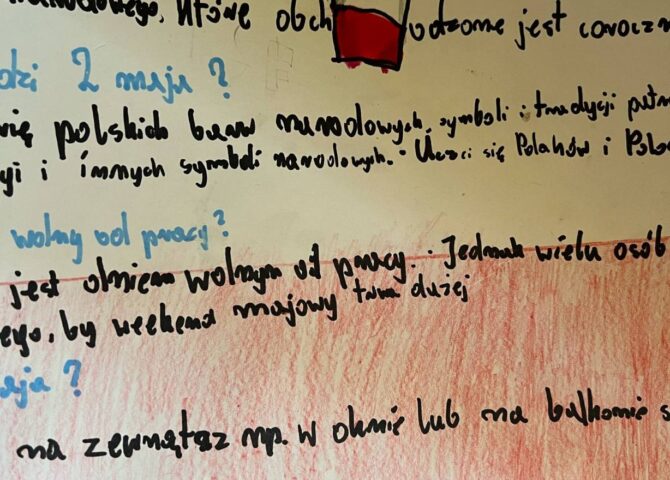 które obchodzone jest coroczn
dzi 2 maja ?
się polskich barw narodowych, symboli i tradycji
yi i innych symboli narodowych. Uczci się Polaków i Pol
wolny od pracy?
jest dniem wolnym od pracy. Jednak wielu osób
ego, by weekend majowy trwa dużej
aja ?
na zewnątaz np. w oknie lub na balkonie s